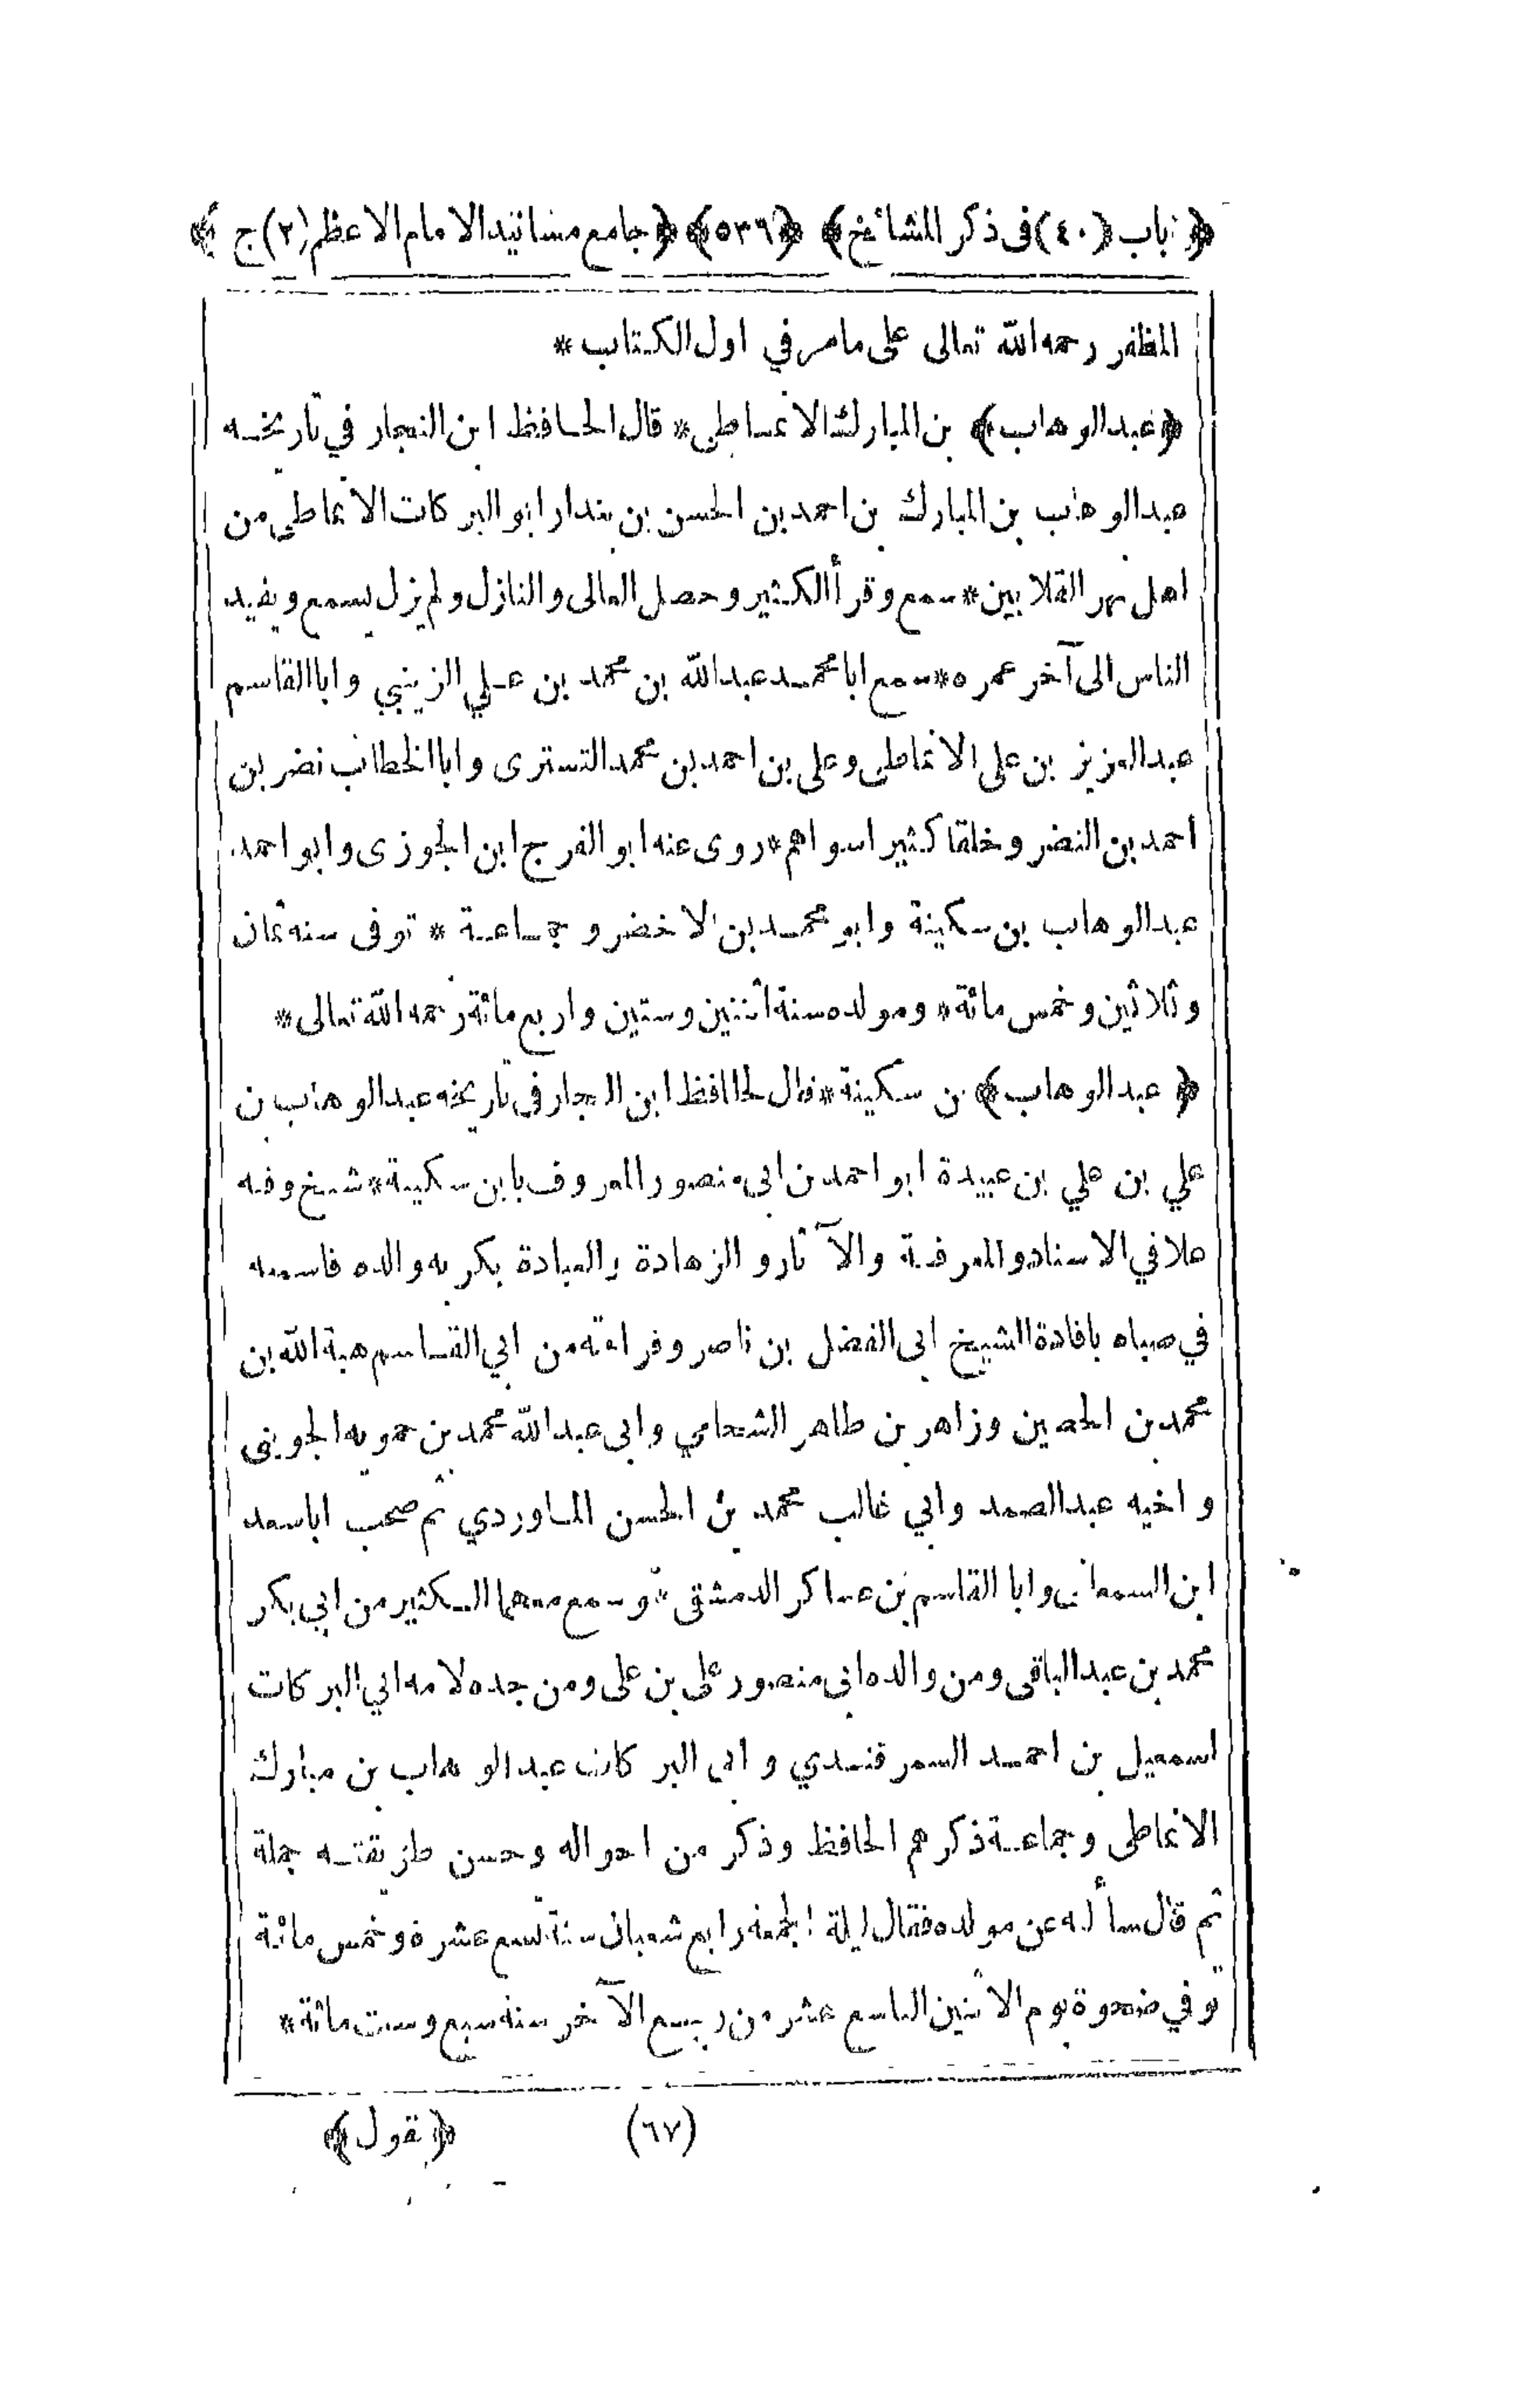 ﴿باب (٤٠) فى ذكر المشائخ﴾ ﴿٥٣٩﴾ ﴿جامع مسانيد الامام الاعظم (٢) ج﴾
المظفر رحمه الله تعالى على مامر في اول الكتاب *
﴿عبد الوهاب﴾ بن المبارك الانماطى * قال الحافظ ابن النجار في تاريخه
عبد الوهاب بن المبارك بن احمد بن الحسن بن بندار ابو البركات الانماطى من
اهل نهر القلابين * سمع وقرأ الكثير وحصل العالى والنازل ولم يزل يسمع ويفيد
الناس الى آخر عمره * سمع ابا محمد عبد الله بن محمد بن علي الزينبي وابا القاسم
عبد العزيز بن على الانماطى وعلى بن احمد بن محمد التسترى وابا الخطاب نصر بن
احمد بن النضر وخلقا كثيرا سواهم * روى عنه ابو الفرج ابن الجوزى وابو احمد
عبد الوهاب بن سكينة وابو محمد بن الاخضر وجماعة * توفى سنه ثمان
وثلاثين وخمس مائة * ومولده سنة اثنتين وستين واربع مائة رحمه الله تعالى *
﴿عبد الوهاب﴾ بن سكينة * قال لحافظ ابن النجار فى تاريخه عبد الوهاب بن
علي بن علي بن عبيدة ابو احمد بن ابى منصور المعروف بابن سكينة * شيخ وقه
علا في الاسناد والمعرفة والآثار و الزهادة والعبادة بكر به والده فاسمعه
في صباه بافادة الشيخ ابى الفضل بن ناصر وقراءته من ابي القاسم هبة الله بن
محمد بن الحصين وزاهر بن طاهر الشحامي وابى عبد الله محمد بن حمويه الجوينى
واخيه عبد الصمد وابي غالب محمد بن الحسن الماوردي ثم صحب ابا سعد
ابن السمعانى وابا القاسم بن عساكر الدمشقى * وسمع معهما الكثير من ابي بكر
محمد بن عبد الباقى ومن والده ابى منصور على بن على ومن جده لامه ابي البركات
اسمعيل بن احمد السمرقندي وابى البركات عبد الوهاب بن مبارك
الانماطى وجماعة ذكرهم الحافظ وذكر من احواله وحسن طريقته جملة
ثم قال سأله عن مولده فقال ليلة الجمعة رابع شعبان سنة تسع عشرة وخمس مائة
توفي ضحوة يوم الاثنين التاسع عشر من ربيع الآخر سنه سبع وست مائة *
(٦٧) ﴿تقول﴾